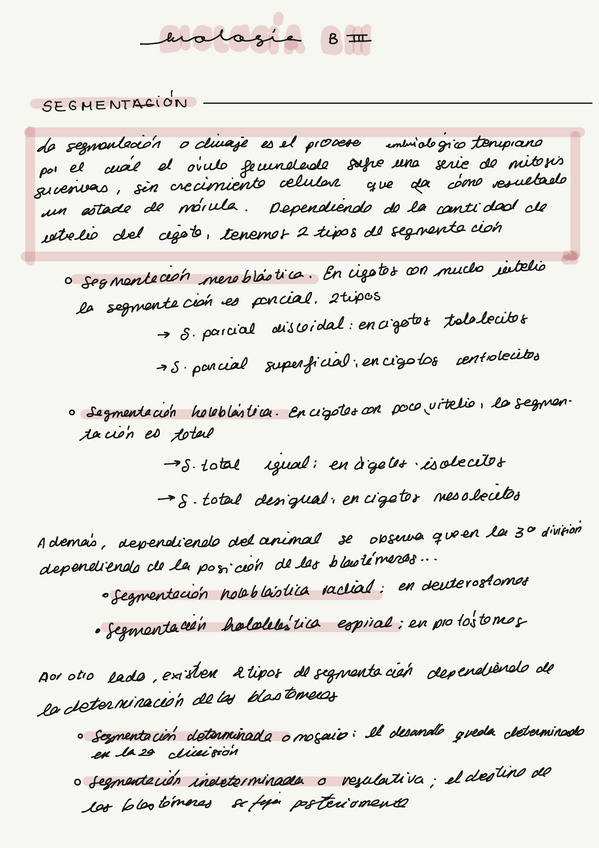 biología B III
SEGMENTACIÓN
La segmentación o clivaje es el proceso embriológico temprano
por el cuál el óvulo fecundado sufre una serie de mitosis
sucesivas, sin crecimiento celular que da cómo resultado
un estado de mórula. Dependiendo de la cantidad de
vitelio del cigoto, tenemos 2 tipos de segmentación
Segmentación meroblástica. En cigotos con mucho vitelio
la segmentación es parcial. 2 tipos
→ S. parcial discoidal: en cigotos telolecitos
→ S. parcial superficial: en cigotos centrolecitos
Segmentación holoblástica. En cigotos con poco vitelio, la segmen-
tación es total
→ S. total igual: en cigotos isolecitos
→ S. total desigual: en cigotos mesolecitos
Además, dependiendo del animal se observa que en la 3ª división
dependiendo de la posición de los blastómeros...
Segmentación holoblástica radial: en deuterostomos
Segmentación holoblástica espiral: en protóstomos
Por otro lado, existen 2 tipos de segmentación dependiendo de
la determinación de los blastómeros
Segmentación determinada o mosaico: el desarrollo queda determinado
en la 2ª división
Segmentación indeterminada o regulativa: el destino de
los blastómeros se fija posteriormente